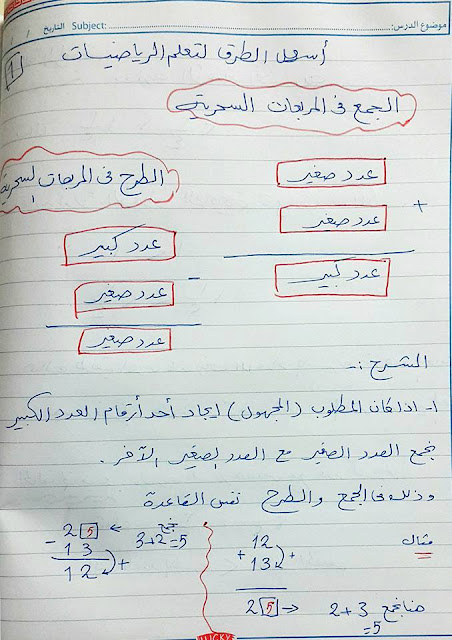 موضوع الدرس: Subject: التاريخ / /
1
أسهل الطرق لتعلم الرياضيات
الجمع فى المربعات السحرية
الطرح فى المربعات السحرية
عدد صغير
+
عدد صغير
عدد كبير
عدد كبير
-
عدد صغير
عدد صغير
الشرح :-
1- اذا كان المطلوب (المجهول) ايجاد أحد أرقام العدد الكبير
نجمع العدد الصغير مع العدد الصغير الآخر .
وذلك فى الجمع والطرح نفس القاعدة
مثال
12
+ 13 +
2 5 → 2+3 هنا نجمع
=5
2 5 ← نجمع
3+2=5
- 13
12 +
LUCKY